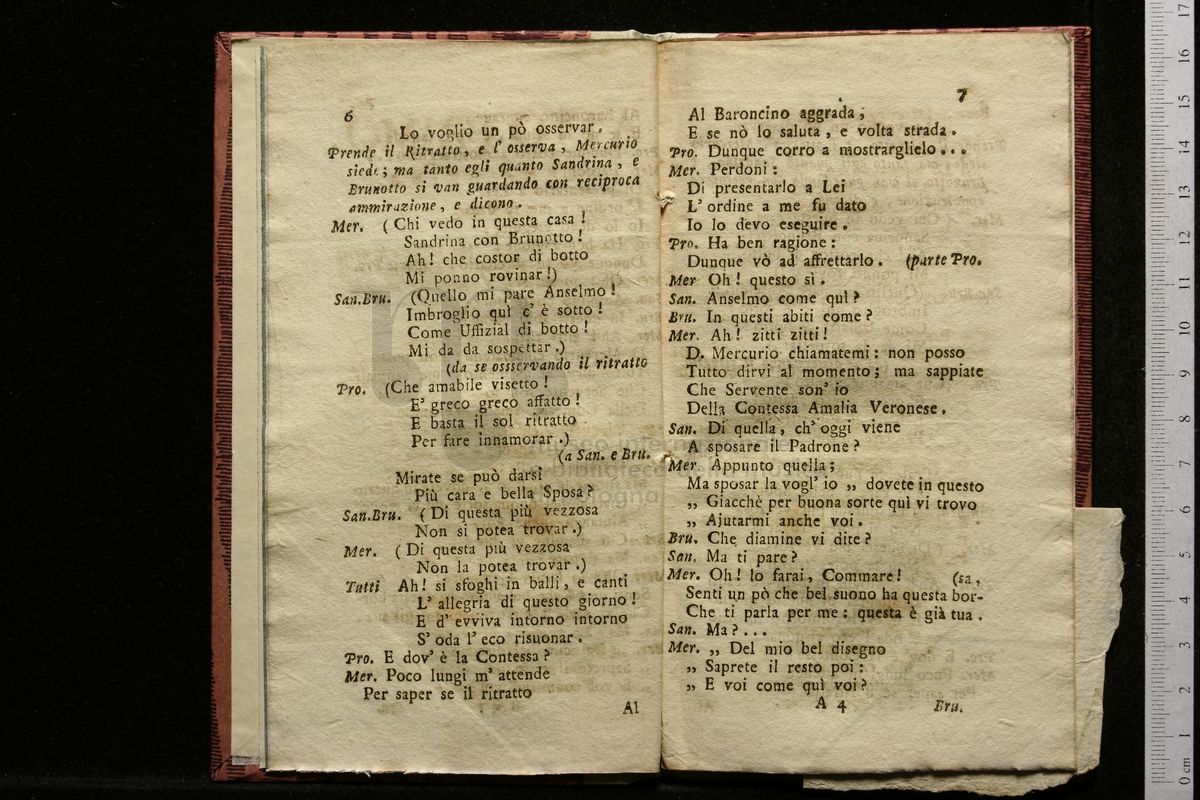 6
Lo voglio un pò osservar.
Prende il Ritratto, e l' osserva, Mercurio
siede; ma tanto egli quanto Sandrina, e
Brunotto si van guardando con reciproca
ammirazione, e dicono.
Mer. (Chi vedo in questa casa!
Sandrina con Brunotto!
Ah! che costor di botto
Mi ponno rovinar!)
San.Bru. (Quello mi pare Anselmo!
Imbroglio quì c' è sotto!
Come Uffizial di botto!
Mi da da sospettar.)
(da se ossservando il ritratto
Pro. (Che amabile visetto!
E' greco greco affatto!
E basta il sol ritratto
Per fare innamorar.)
(a San. e Bru.
Mirate se può darsi
Più cara e bella Sposa?
San.Bru. (Di questa più vezzosa
Non si potea trovar.)
Mer. (Di questa più vezzosa
Non la potea trovar.)
Tutti Ah! si sfoghi in balli, e canti
L' allegria di questo giorno!
E d' evviva intorno intorno
S' oda l' eco risuonar.
Pro. E dov' è la Contessa?
Mer. Poco lungi m' attende
Per saper se il ritratto
Al
7
Al Baroncino aggrada;
E se nò lo saluta, e volta strada.
Pro. Dunque corro a mostrarglielo...
Mer. Perdoni:
Di presentarlo a Lei
L' ordine a me fu dato
Io lo devo eseguire.
Pro. Ha ben ragione:
Dunque vò ad affrettarlo. (parte Pro.
Mer Oh! questo sì.
San. Anselmo come quì?
Bru. In questi abiti come?
Mer. Ah! zitti zitti!
D. Mercurio chiamatemi: non posso
Tutto dirvi al momento; ma sappiate
Che Servente son' io
Della Contessa Amalia Veronese.
San. Di quella, ch' oggi viene
A sposare il Padrone?
Mer. Appunto quella;
Ma sposar la vogl' io „ dovete in questo
„ Giacchè per buona sorte quì vi trovo
„ Ajutarmi anche voi.
Bru. Che diamine vi dite?
San. Ma ti pare?
Mer. Oh! lo farai, Commare! (sa,
Senti un pò che bel suono ha questa bor-
Che ti parla per me: questa è già tua.
San. Ma?...
Mer. „ Del mio bel disegno
„ Saprete il resto poi:
„ E voi come quì voi?
A 4 Bru.